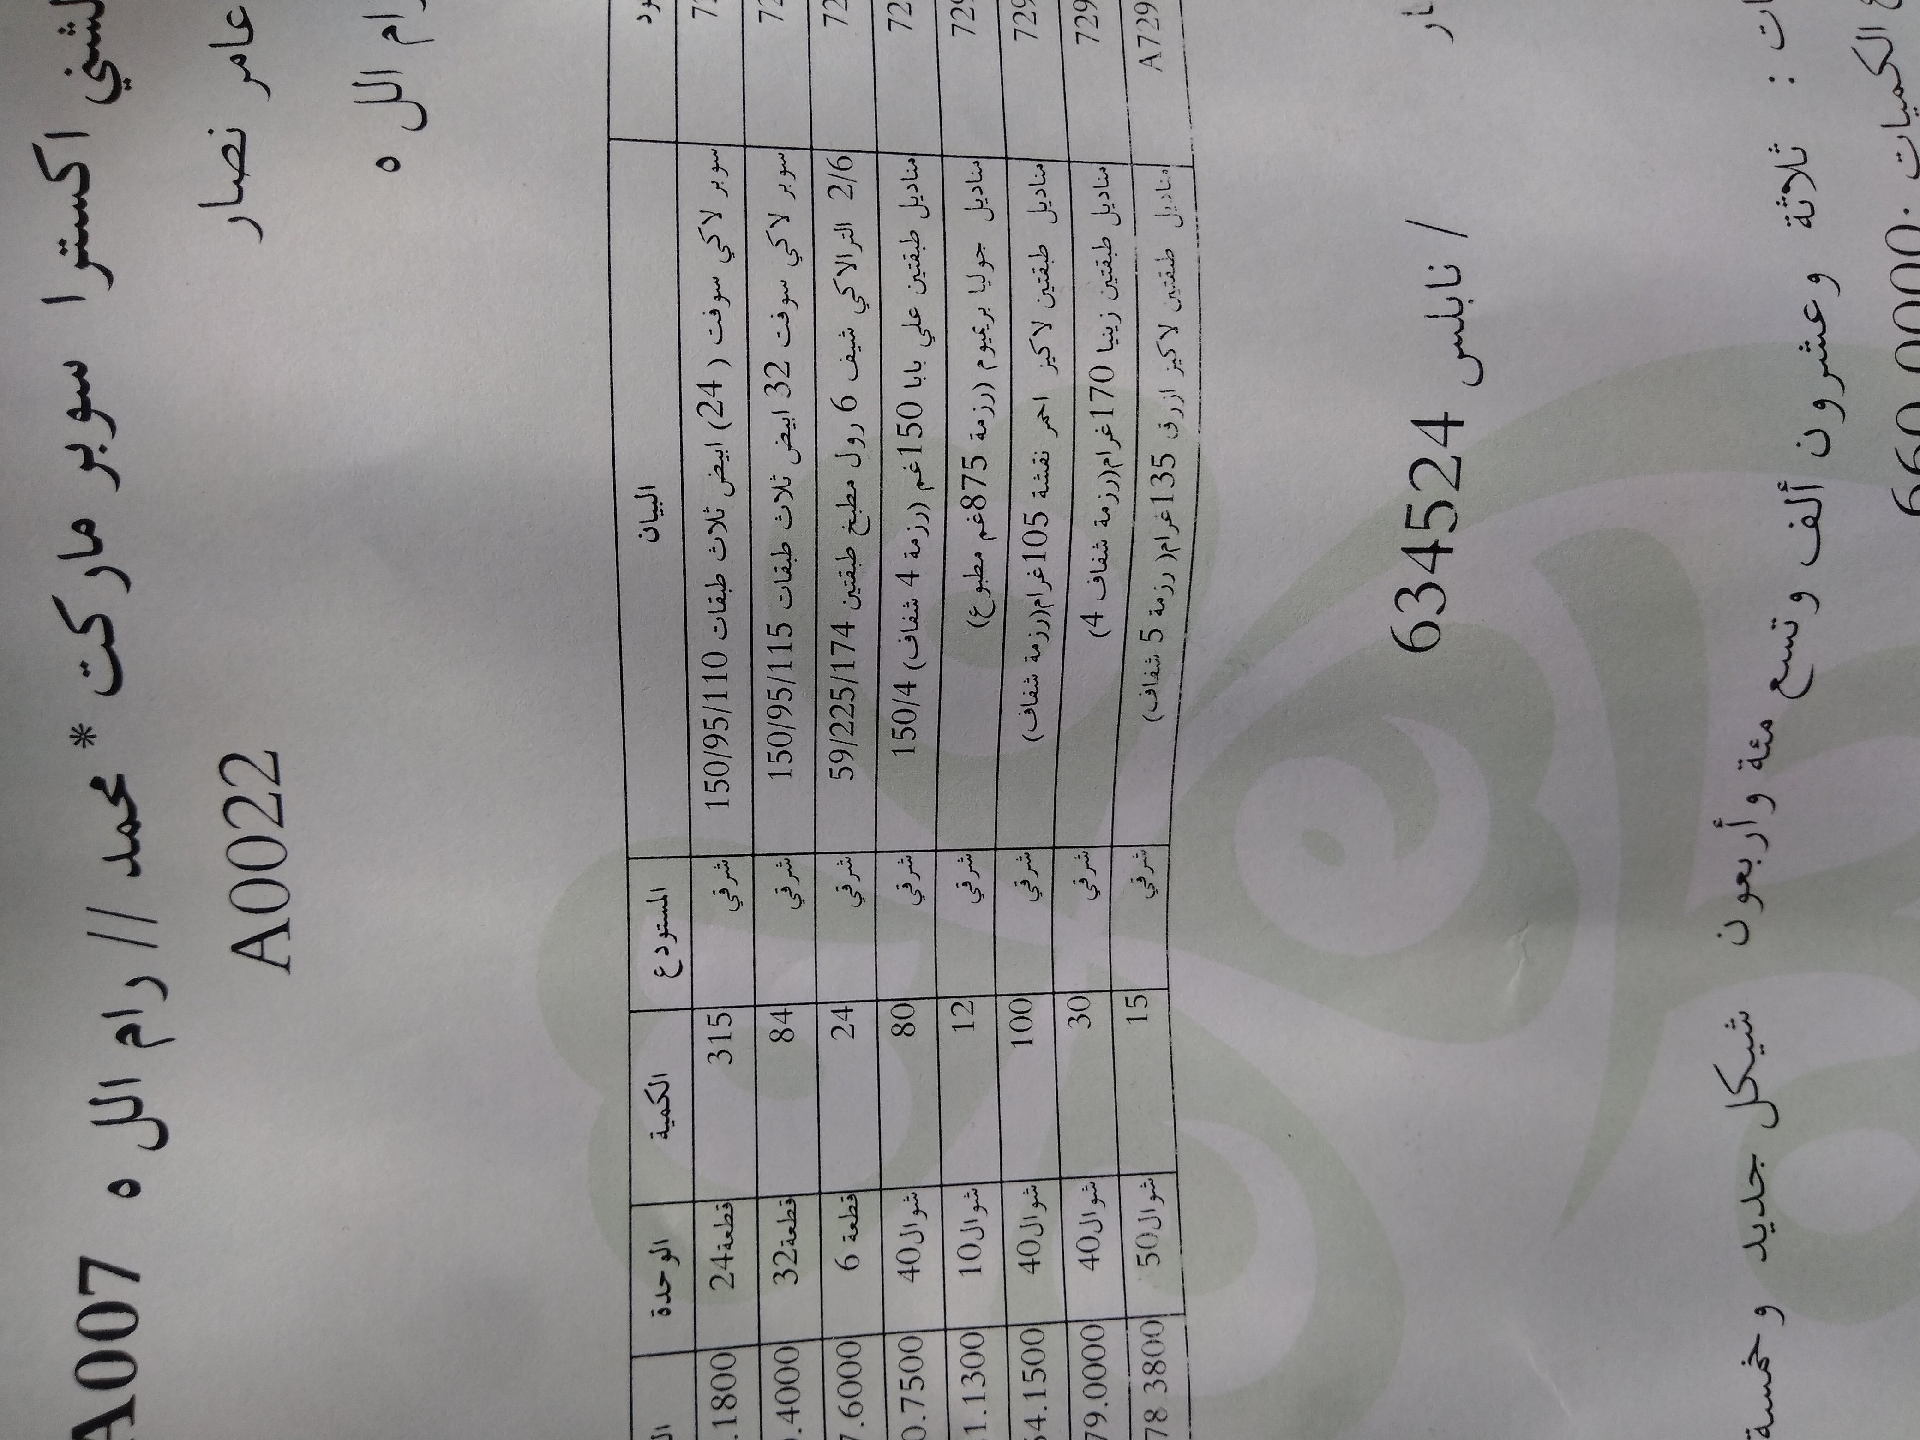 اكسترا سوبر ماركت * محمد // رام الل ه A007
عامر نصار A0022
الل ه
البيان المستودع الكمية الوحدة
سوبر لاكي سوفت ( 24) ابيض ثلاث طبقات 150/95/110 شرقي 315 قطعة24 .1800
سوبر لاكي سوفت 32 ابيض ثلاث طبقات 150/95/115 شرقي 84 قطعة32 .4000
2/6 الترالاكي شيف 6 رول مطبخ طبقتين 59/225/174 شرقي 24 قطعة 6 7.6000
مناديل طبقتين علي بابا 150غم (رزمة 4 شفاف) 150/4 شرقي 80 شوال40 0.7500
مناديل جوليا بريميوم (رزمة 875غم مطبوع) شرقي 12 شوال10 1.1300
مناديل طبقتين لاكيز احمر نقشة 105غرام(رزمة شفاف) شرقي 100 شوال40 54.1500
مناديل طبقتين زينيا 170غرام(رزمة شفاف 4) شرقي 30 شوال40 79.0000
A729 مناديل طبقتين لاكيز ازرق 135غرام( رزمة 5 شفاف) شرقي 15 شوال50 78 3800
/ نابلس 634524
ثلاثة وعشرون ألف وتسع مئة وأربعون شيكل جديد وخمسة
الكميات :660.0000